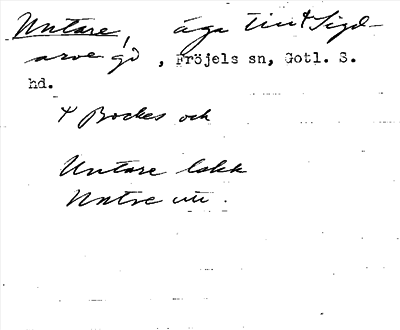 Untare, äga till Sigd-
arve gd, Fröjels sn, Gotl. S.
hd.
+ Bockes och
Untare lakk
Natre vii.